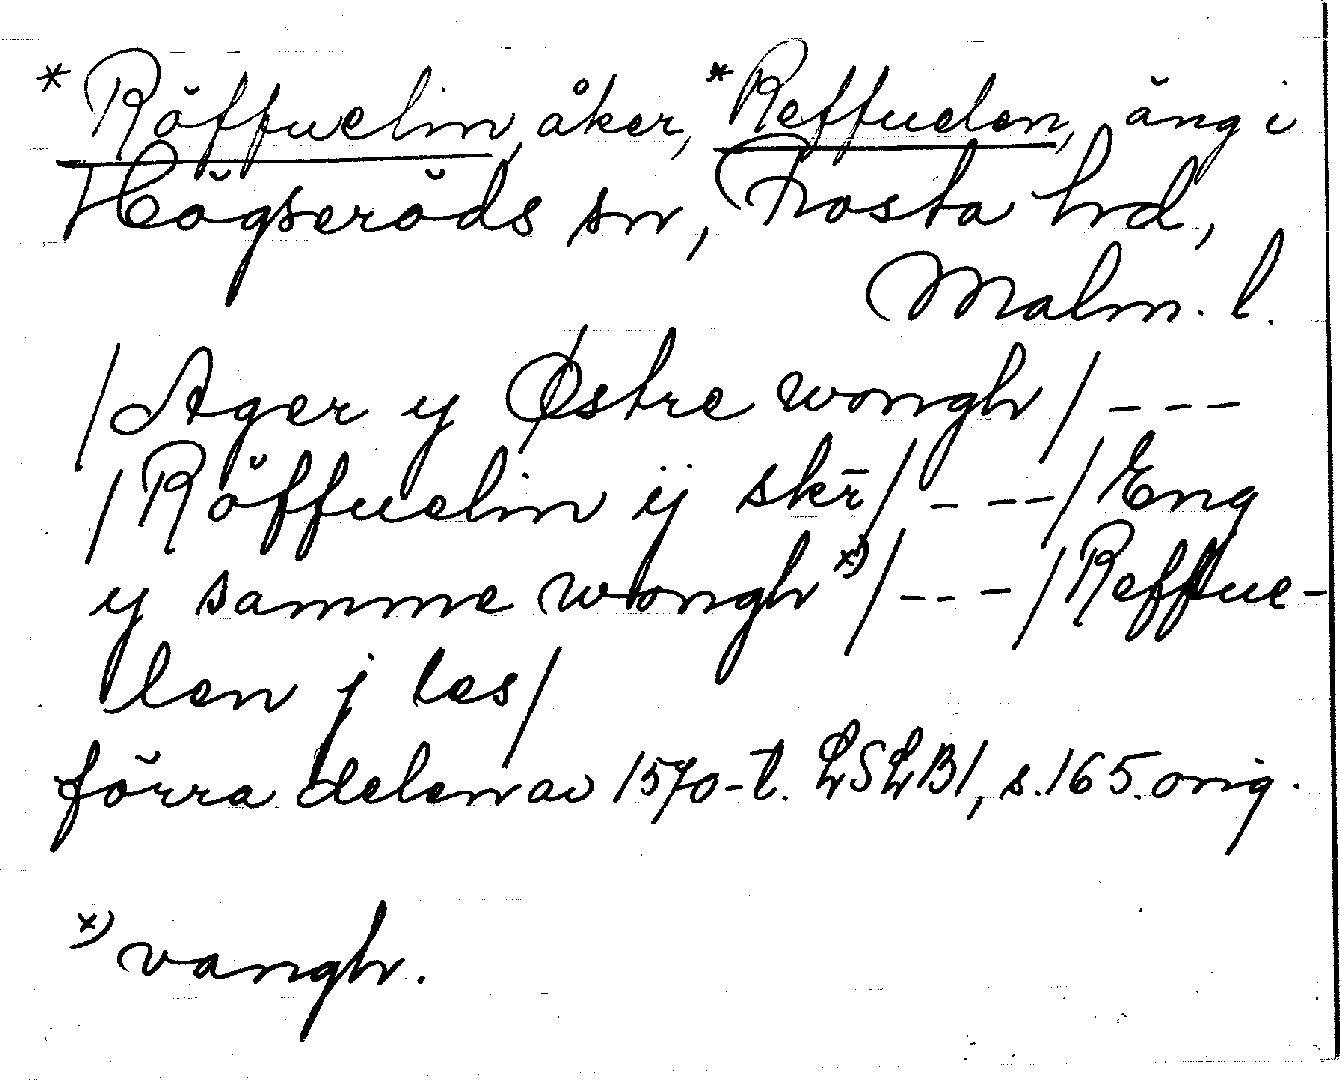 *Röffuelin, åker, *Reffuelen, äng i
Högseröds sn, Frosta hd,
Malm. l.
/Ager y Østre wongh/ ---
/Röffuelin ij skr̄/ - -- /Eng
y samme wongh x)/ --- /Reffue-
len j les/
förra delen av 1570-t. LSLB1, s. 165. orig.
x) vangh.